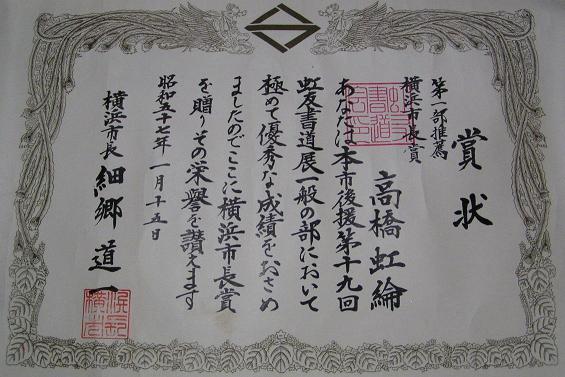 賞状
第一部推薦
横浜市長賞
高橋虹綸
あなたは本市後援第十九回
虹友書道展一般の部において
極めて優秀な成績をおさめ
ましたのでここに横浜市長賞
を贈りその栄誉を讃えます
昭和五十七年一月十五日
横浜市長 細郷道一